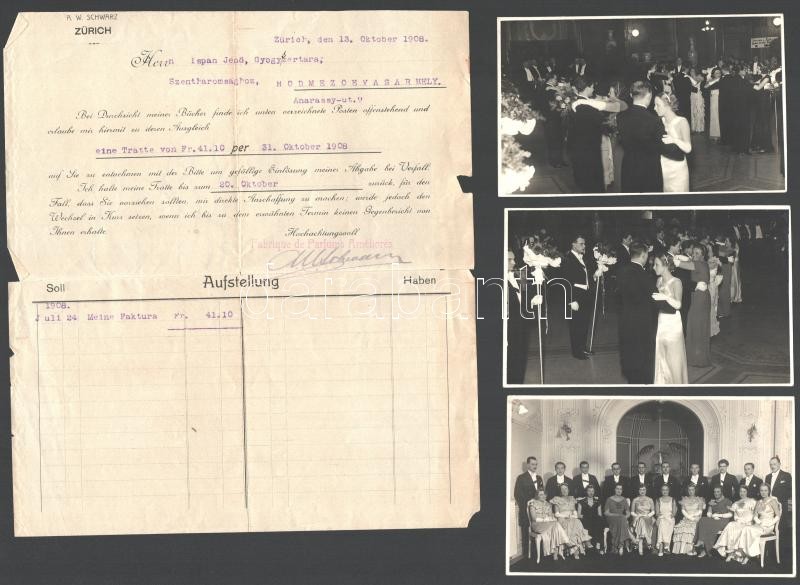 A. W. SCHWARZ
ZÜRICH
Zürich, den 13. Oktober 1908.
Herrn Ispan Jenö, Gyogyszertara,
Szentharomsaghoz, HODMEZOEVASARHELY.
Anarassy-ut.9
Bei Durchsicht meiner Bücher finde ich unten verzeichnete Posten offenstehend und
erlaube mir hiermit zu deren Ausgleich
eine Tratte von Fr.41.10 per 31. Oktober 1908
auf Sie zu entnehmen mit der Bitte um gefällige Einlösung meiner Abgabe bei Verfall.
Ich halte meine Tratte bis zum 20. Oktober zurück, für den
Fall, dass Sie vorziehen sollten, mir direkte Anschaffung zu machen; werde jedoch den
Wechsel in Kurs setzen, wenn ich bis zu dem erwähnten Termin keinen Gegenbericht von
Ihnen erhalte.
Hochachtungsvoll
Fabrique de Parfums Améliorés
Soll Aufstellung Haben
1908.
Juli 24 Meine Faktura Fr. 41.10
darabanth